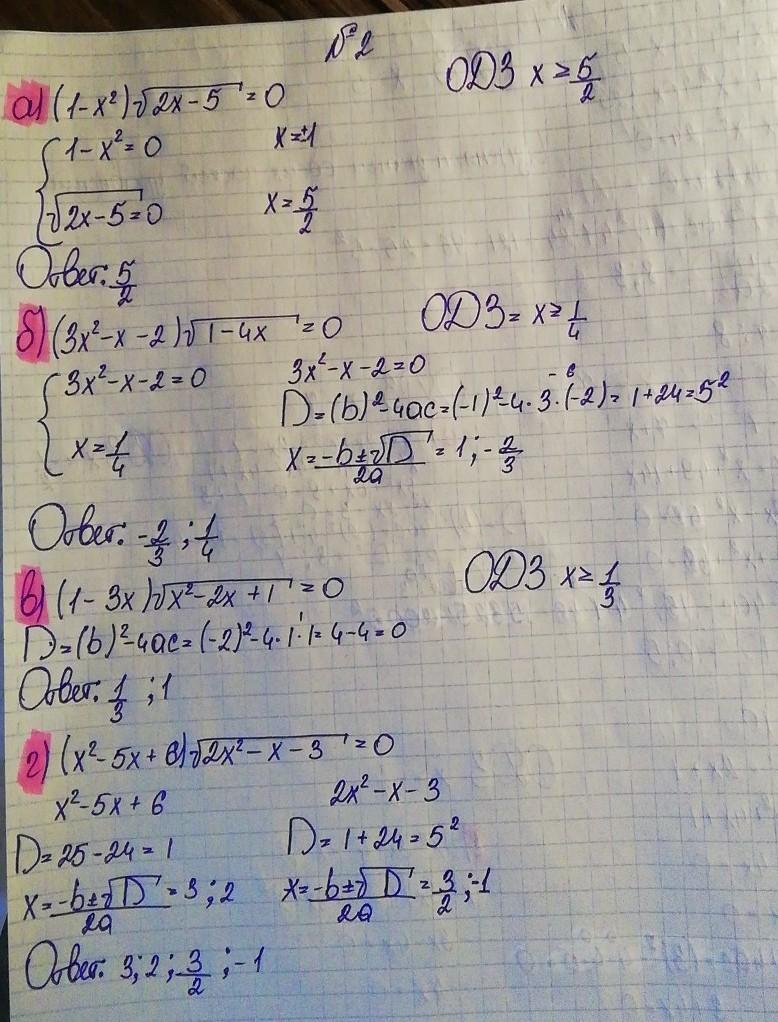 №2
а) (1-x²)√(2x-5) = 0 ОДЗ x ≥ 5/2
{ 1-x² = 0 x = ±1
√(2x-5) = 0 x = 5/2
Ответ: 5/2
б) (3x²-x-2)√(1-4x) = 0 ОДЗ = x ≥ 1/4
{ 3x²-x-2 = 0 3x²-x-2 = 0
D = (b)²-4ac = (-1)²-4·3·(-2) = 1+24 = 5²
x = 1/4 x = (-b±√D)/2a = 1; -2/3
Ответ: -2/3; 1/4
в) (1-3x)√(x²-2x+1) = 0 ОДЗ x ≥ 1/3
D = (b)²-4ac = (-2)²-4·1·1 = 4-4 = 0
Ответ: 1/3; 1
г) (x²-5x+6)√(2x²-x-3) = 0
x²-5x+6 2x²-x-3
D = 25-24 = 1 D = 1+24 = 5²
x = (-b±√D)/2a = 3; 2 x = (-b±√D)/2a = 3/2; -1
Ответ. 3; 2; 3/2; -1